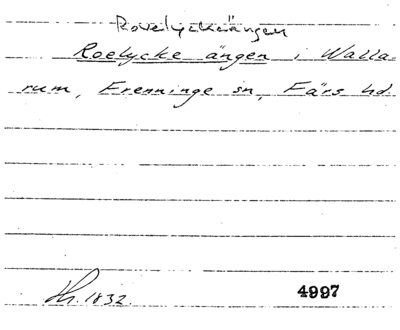 Rovelyckeängen
Roelycke ängen i Walla-
rum, Frenninge sn, Färs hd.
Th. 1832.
4997